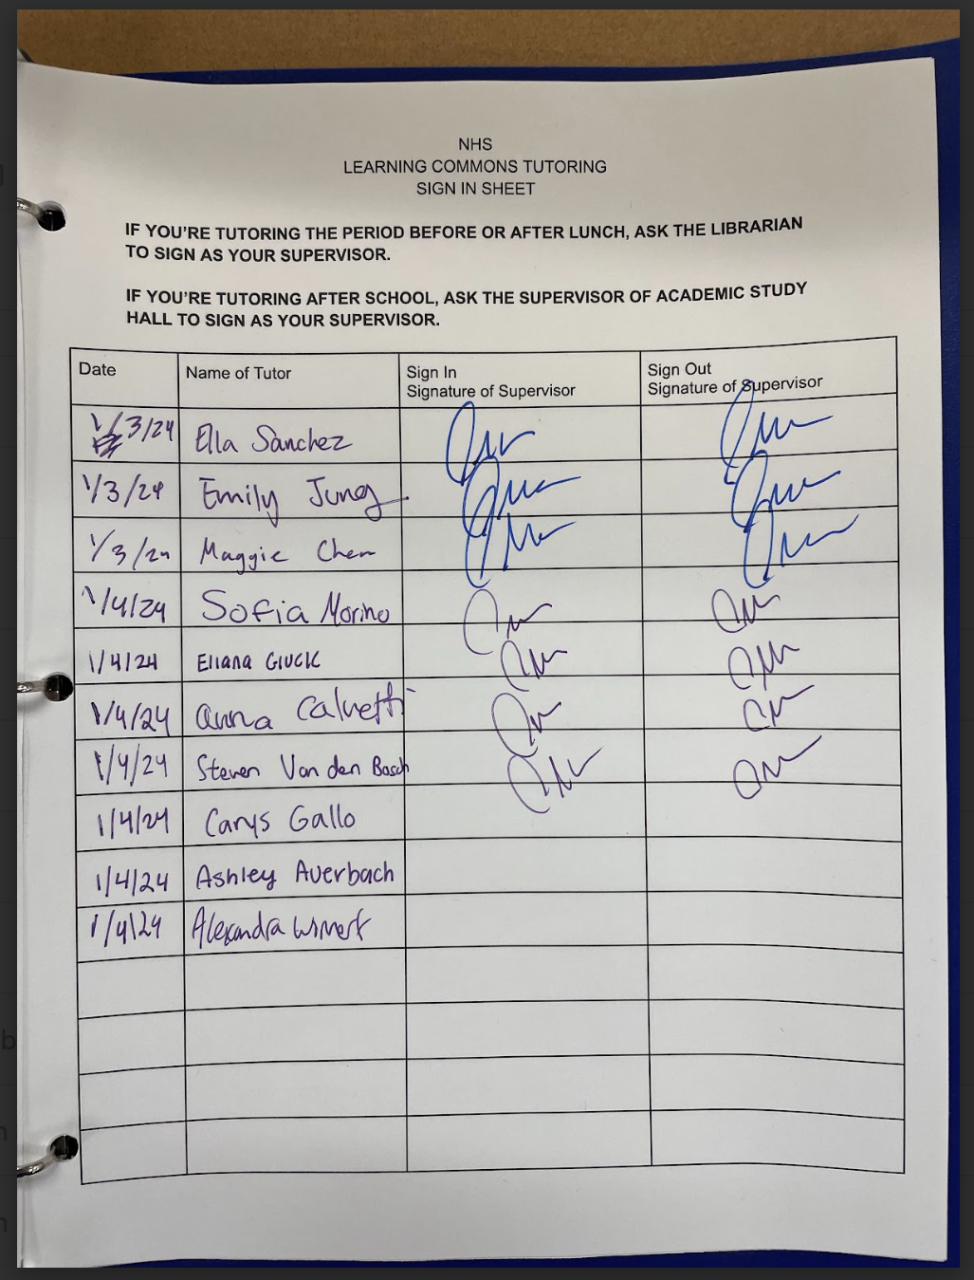 NHS
LEARNING COMMONS TUTORING
SIGN IN SHEET
IF YOU'RE TUTORING THE PERIOD BEFORE OR AFTER LUNCH, ASK THE LIBRARIAN
TO SIGN AS YOUR SUPERVISOR.
IF YOU'RE TUTORING AFTER SCHOOL, ASK THE SUPERVISOR OF ACADEMIC STUDY
HALL TO SIGN AS YOUR SUPERVISOR.
Date Name of Tutor Sign In Signature of Supervisor Sign Out Signature of Supervisor
1/3/24 Ella Sanchez
1/3/24 Emily Jung
1/3/24 Maggie Chen
1/4/24 Sofia Morino
1/4/24 Eliana Gluck
1/4/24 anna Calvetti
1/4/24 Steven Van den Bosch
1/4/24 Carys Gallo
1/4/24 Ashley Averbach
1/4/24 Alexandra